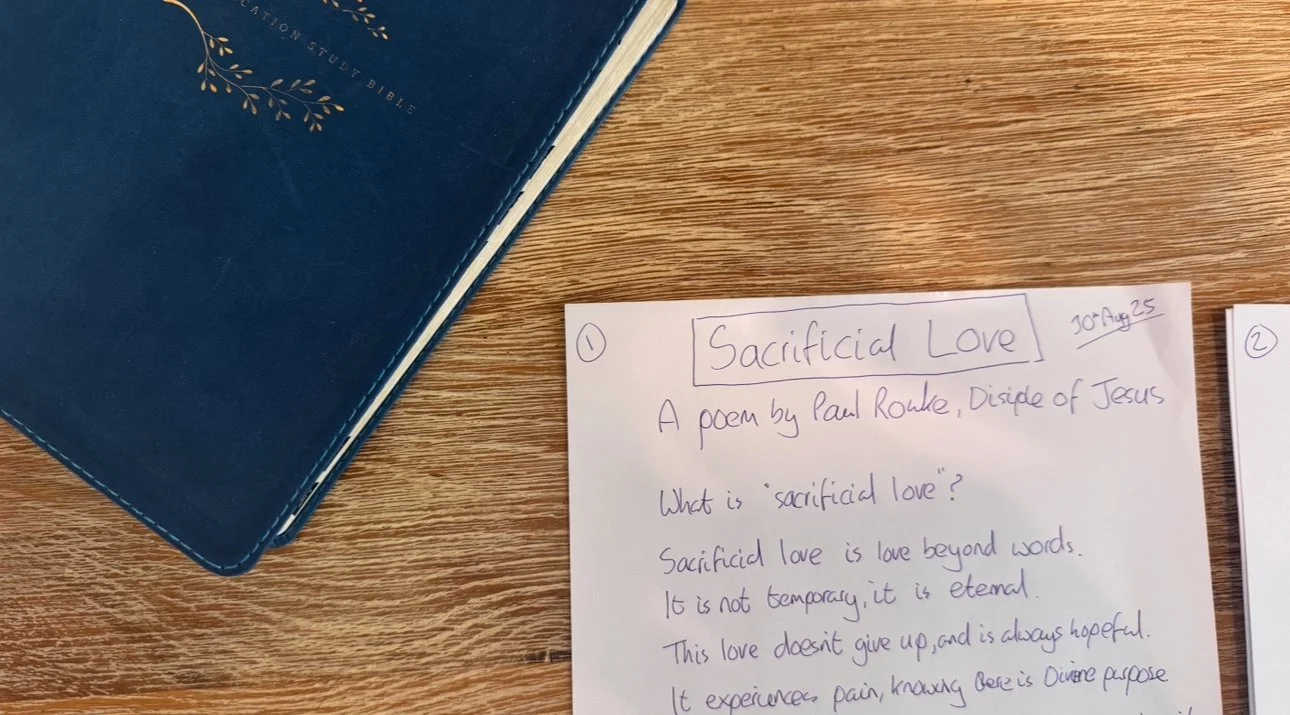 CATION STUDY BIBLE
1
Sacrificial Love
30th Aug 25
A poem by Paul Rouke, Disciple of Jesus
What is "sacrificial love"?
Sacrificial love is love beyond words.
It is not temporary, it is eternal.
This love doesn't give up, and is always hopeful.
It experiences pain, knowing there is Divine purpose
2